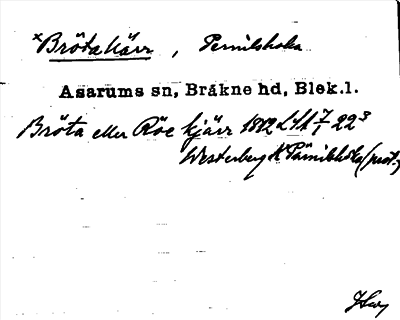 ×Brötakärr, Pernilshoka
Asarums sn, Bräkne hd, Blek.l.
Bröta eller Röe kjärr 1812 LSA 7/1 22³
Westerberg K Pärnilshôka (prot.)